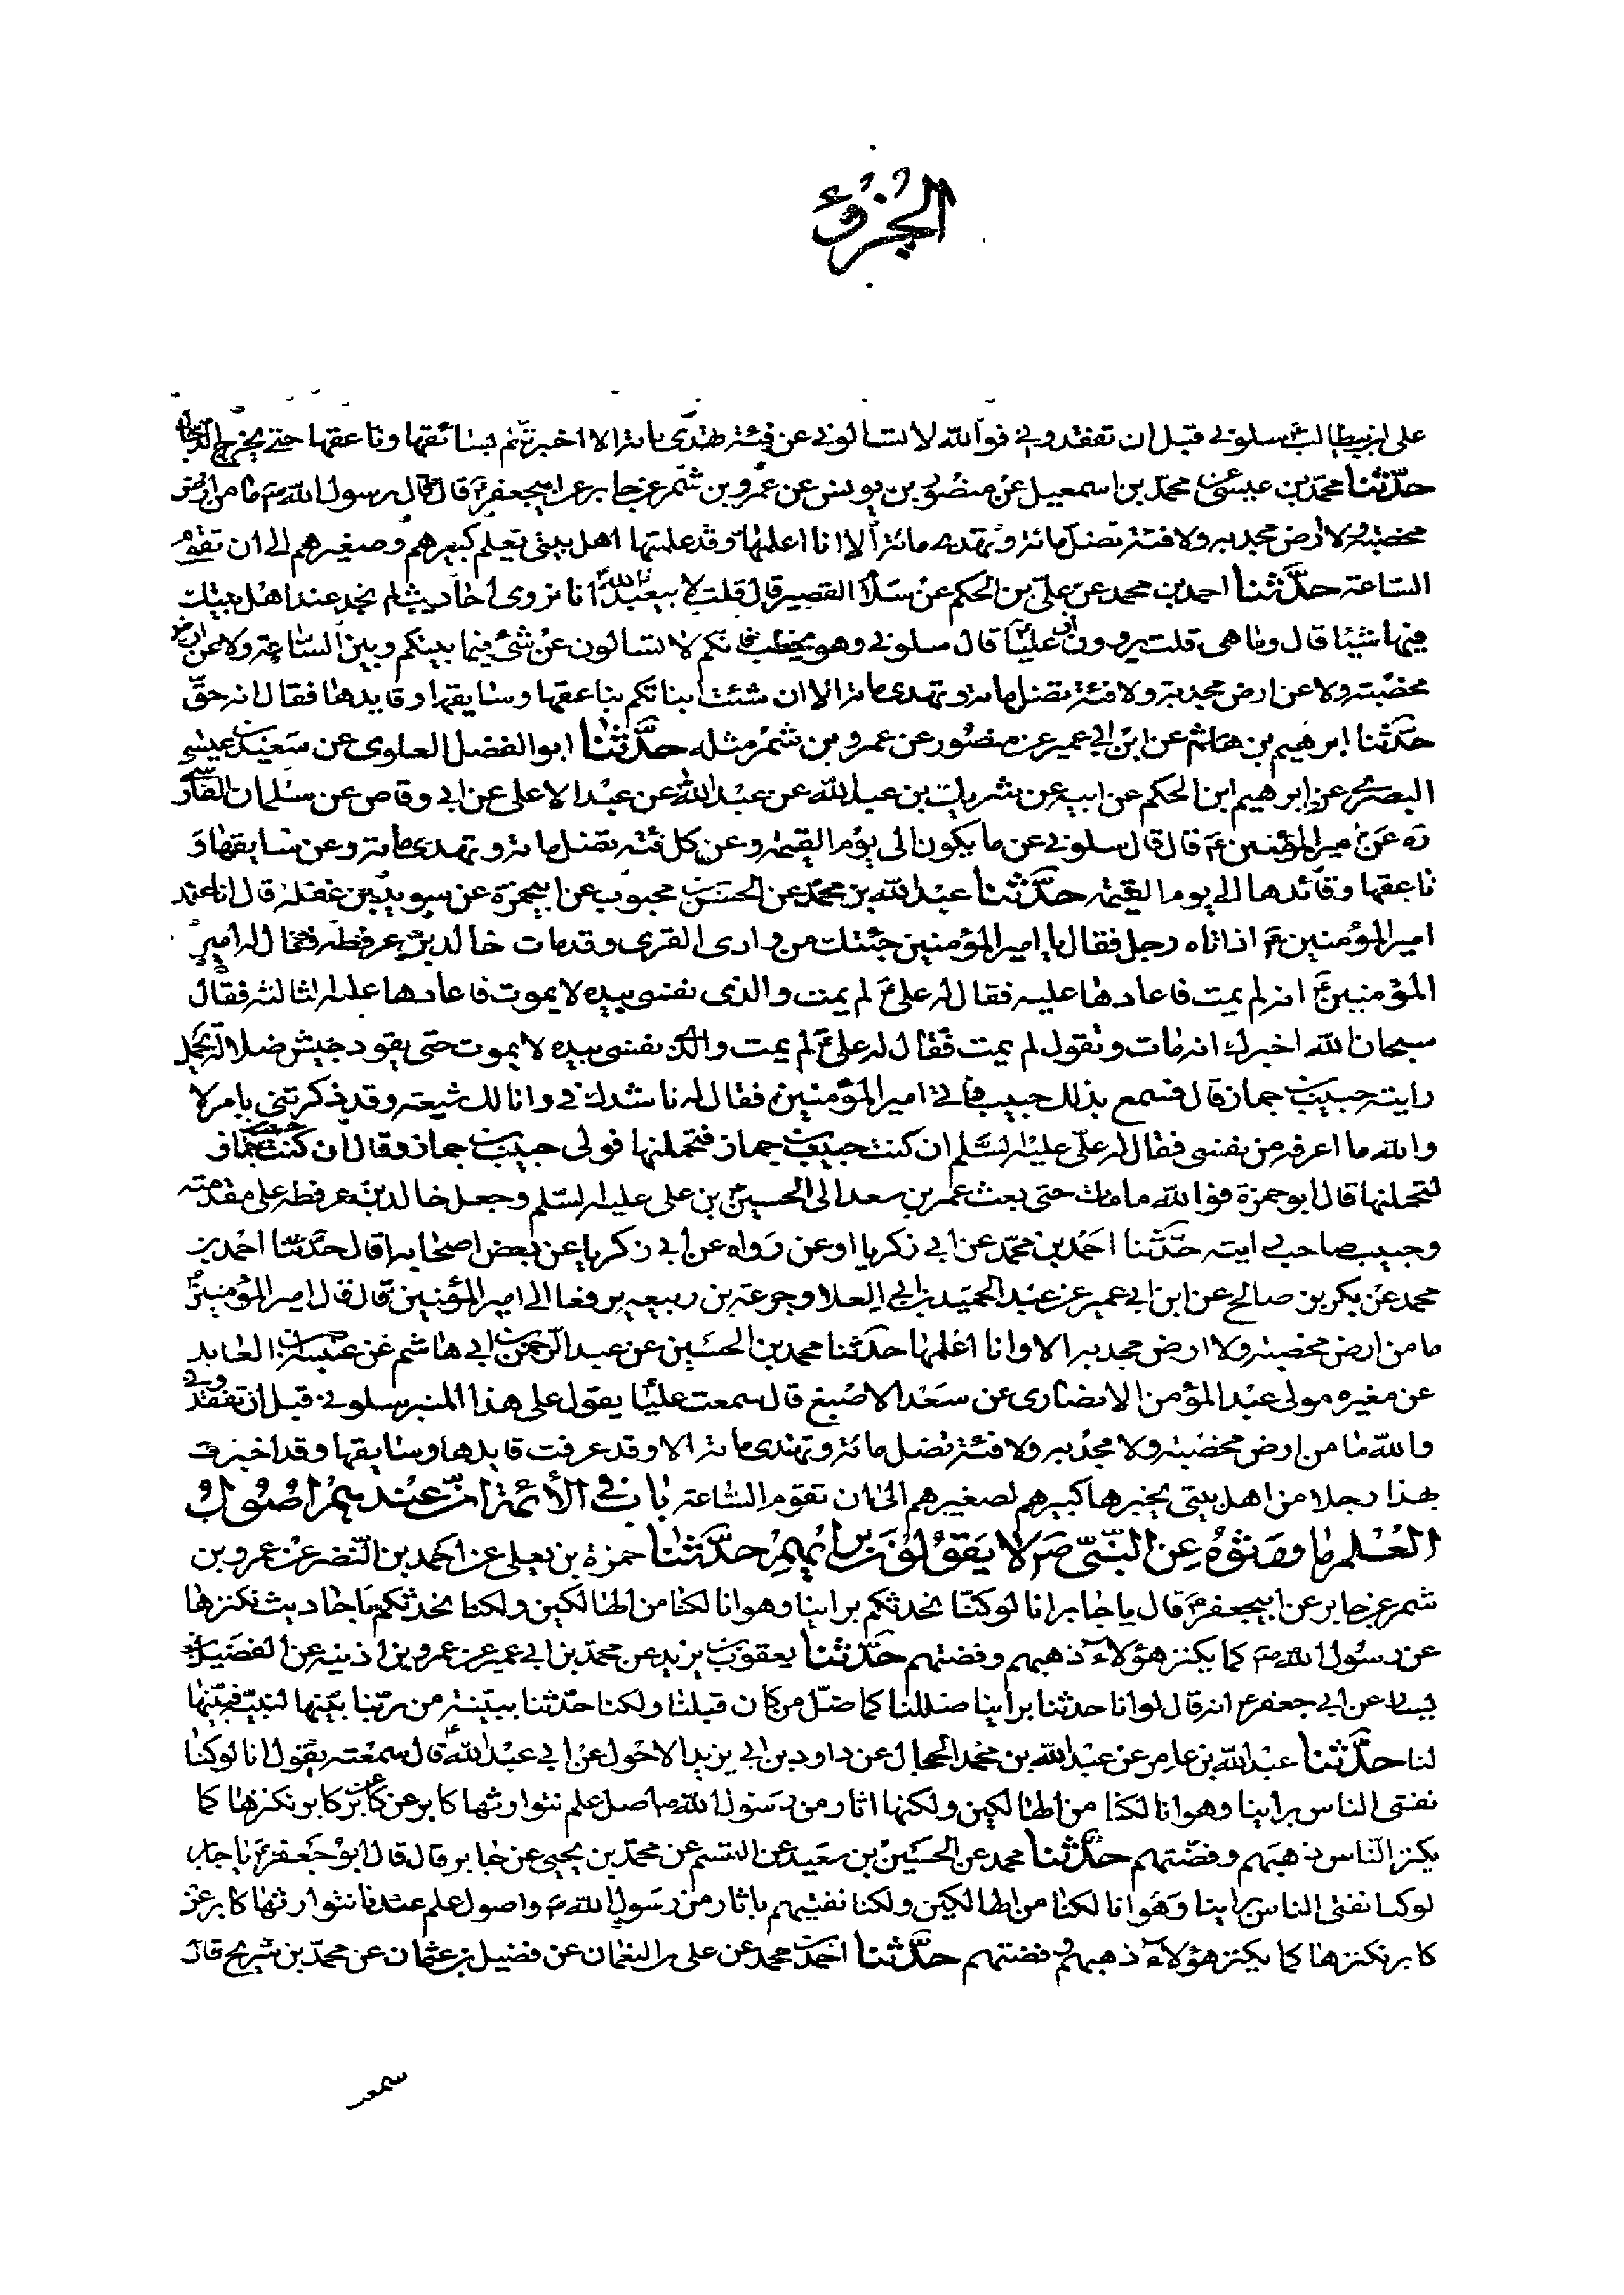 الجزؤ
على ابن ابيطالب ع سلونى قبل ان تفقدونى فو الله لا تسالونى عن فئة تهتدى مائة الا اخبرتكم بسائقها وناعقها حتى يخرج الدجال
حدّثنا محمد بن عيسى عن محمد بن اسمعيل عن منصور بن يونس عن عمرو بن شمر عن جابر عن ابيجعفر ع قال قال رسول الله ص ما من ارض
مخضبة ولا ارض مجدبه ولا فئة تضل مائة وتهدى مائة الا انا اعلمها وقد علمتها اهل بيتى يعلم كبيرهم وصغيرهم الى ان تقوم
الساعة حدّثنا احمد بن محمد عن على بن الحكم عن سلام القصير قال قلت لابيعبد الله انا نروى احاديث لم نجد عند اهل بيتك
فيها شيئا قال وما هى قلت يروون ان عليا ع قال سلونى وهو يخطب فانكم لا تسالون عن شئ فيما بينكم وبين الساعة ولا عن ارض
مخضبة ولا عن ارض مجدبة ولا فئة تضل مائة وتهدى مائة الا ان شئت انباتكم بناعقها وسايقها وقايدها فقال انه حق
حدّثنا ابرهيم بن هاشم عن ابن ابى عمير عن منصور عن عمرو بن شمر مثله حدّثنا ابو الفضل العلوى عن سعيد بن عيسى
البصرى عن ابرهيم ابن الحكم عن ابيه عن شريك بن عبد الله عن عبد الله عن عبد الاعلى عن ابى وقاص عن سلمان الفارسى
ره عن امير المؤمنين ع قال قال سلونى عن ما يكون الى يوم القيمة وعن كل فئة تضل مائة وتهدى مائة وعن سايقها و
ناعقها وقائدها الى يوم القيمة حدّثنا عبد الله بن محمد عن الحسن بن محبوب عن ابيحمزة عن سويد بن غفلة قال انا عند
امير المؤمنين ع اذ اتاه رجل فقال يا امير المؤمنين جئتك من وادى القرى وقد مات خالد بن عرفطه فقال له امير
المؤمنين ع انه لم يمت فاعادها عليه فقال له على ع لم يمت والذى نفسى بيده لا يموت فاعادها عليه الثالثة فقال
سبحان الله اخبرك انه مات وتقول لم يمت فقال له على ع لم يمت والذى نفسى بيده لا يموت حتى يقود جيش ضلالة يحمل
رايته حبيب بن جماز قال فسمع بذلك حبيب فاتى امير المؤمنين فقال له ناشدتك فى وانا لك شيعة وقد ذكرتنى بامر لا
والله ما اعرفه من نفسى فقال له على عليه السلم ان كنت حبيب بن جماز فتحملنها فولى حبيب بن جماز وقال ان كنت حبيب بن جماز
لتحملنها قال ابو حمزة فو الله ما مات حتى بعث عمر بن سعد الى الحسين بن على عليه السلم وجعل خالد بن عرفطه على مقدمته
وحبيب صاحب رايته حدّثنا احمد بن محمد عن ابى زكريا او عن رواه عن ابى زكريا عن بعض اصحابه قال حدّثنا احمد بن
محمد عن بكر بن صالح عن ابن ابى عمير عن عبد الحميد بن ابى العلا وجرعة بن ربيعه يرفعا الى امير المؤمنين قال قال امير المؤمنين ع
ما من ارض مخضبة ولا ارض مجدبه الا وانا اعلمها حدثنا محمد بن الحسين عن عبد الرحمن بن ابى هاشم عن عنبسة بن العابد
عن مغيره مولى عبد المؤمن الانصارى عن سعد الاصبغ قال سمعت عليا يقول على هذا المنبر سلونى قبل ان تفقدونى
والله ما من ارض مخضبة ولا مجدبه ولا فئة تضل مائة وتهتدى مائة الا وقد عرفت قايدها وسايقها وقد اخبرت
بهذا رجلا من اهل بيتى يخبرها كبيرهم لصغيرهم الى ان تقوم الساعة باب فى الأئمة ان عندهم اصول
العلم ما ورثوه عن النبى ص لا يقولون برايهم حدّثنا حمزة بن يعلى عن احمد بن النضر عن عمرو بن
شمر عن جابر عن ابيجعفر ع قال يا جابر انا لو كنّا نحدثكم براينا وهوانا لكنا من الهالكين ولكنا نحدثكم باحاديث نكنزها
عن رسول الله ص كما يكنز هؤلاء ذهبهم وفضتهم حدّثنا يعقوب بن يزيد عن محمد بن ابى عمير عن عمرو بن اذينه عن الفضيل بن
يسار عن ابى جعفر ع انه قال لو انا حدثنا براينا ضللنا كما ضلّ من كان قبلنا ولكنا حدّثنا ببيّنة من ربّنا بيّنها لنبيّه فبيّنها
لنا حدّثنا عبد الله بن عامر عن عبد الله بن محمد الحجال عن داود بن ابى يزيد الاحول عن ابى عبد الله ع قال سمعته يقول انا لو كنا
نفتى الناس براينا وهوانا لكنا من الهالكين ولكنها اثار من رسول الله ص اصل علم نتوارثها كابر عن كابر نكنزها كما
يكنز الناس ذهبهم وفضّتهم حدّثنا محمد عن الحسين بن سعيد عن القسم عن محمد بن يحيى عن جابر قال قال ابو جعفر ع يا جابر
لو كنا نفتى الناس براينا وهوانا لكنا من الهالكين ولكنا نفتيهم باثار من رسول الله ص واصول علم عندنا نتوارثها كابر عن
كابر نكنزها كما يكنز هؤلاء ذهبهم وفضتهم حدّثنا احمد بن محمد عن على بن النعمان عن فضيل بن عثمان عن محمد بن شريح قال
سمعت